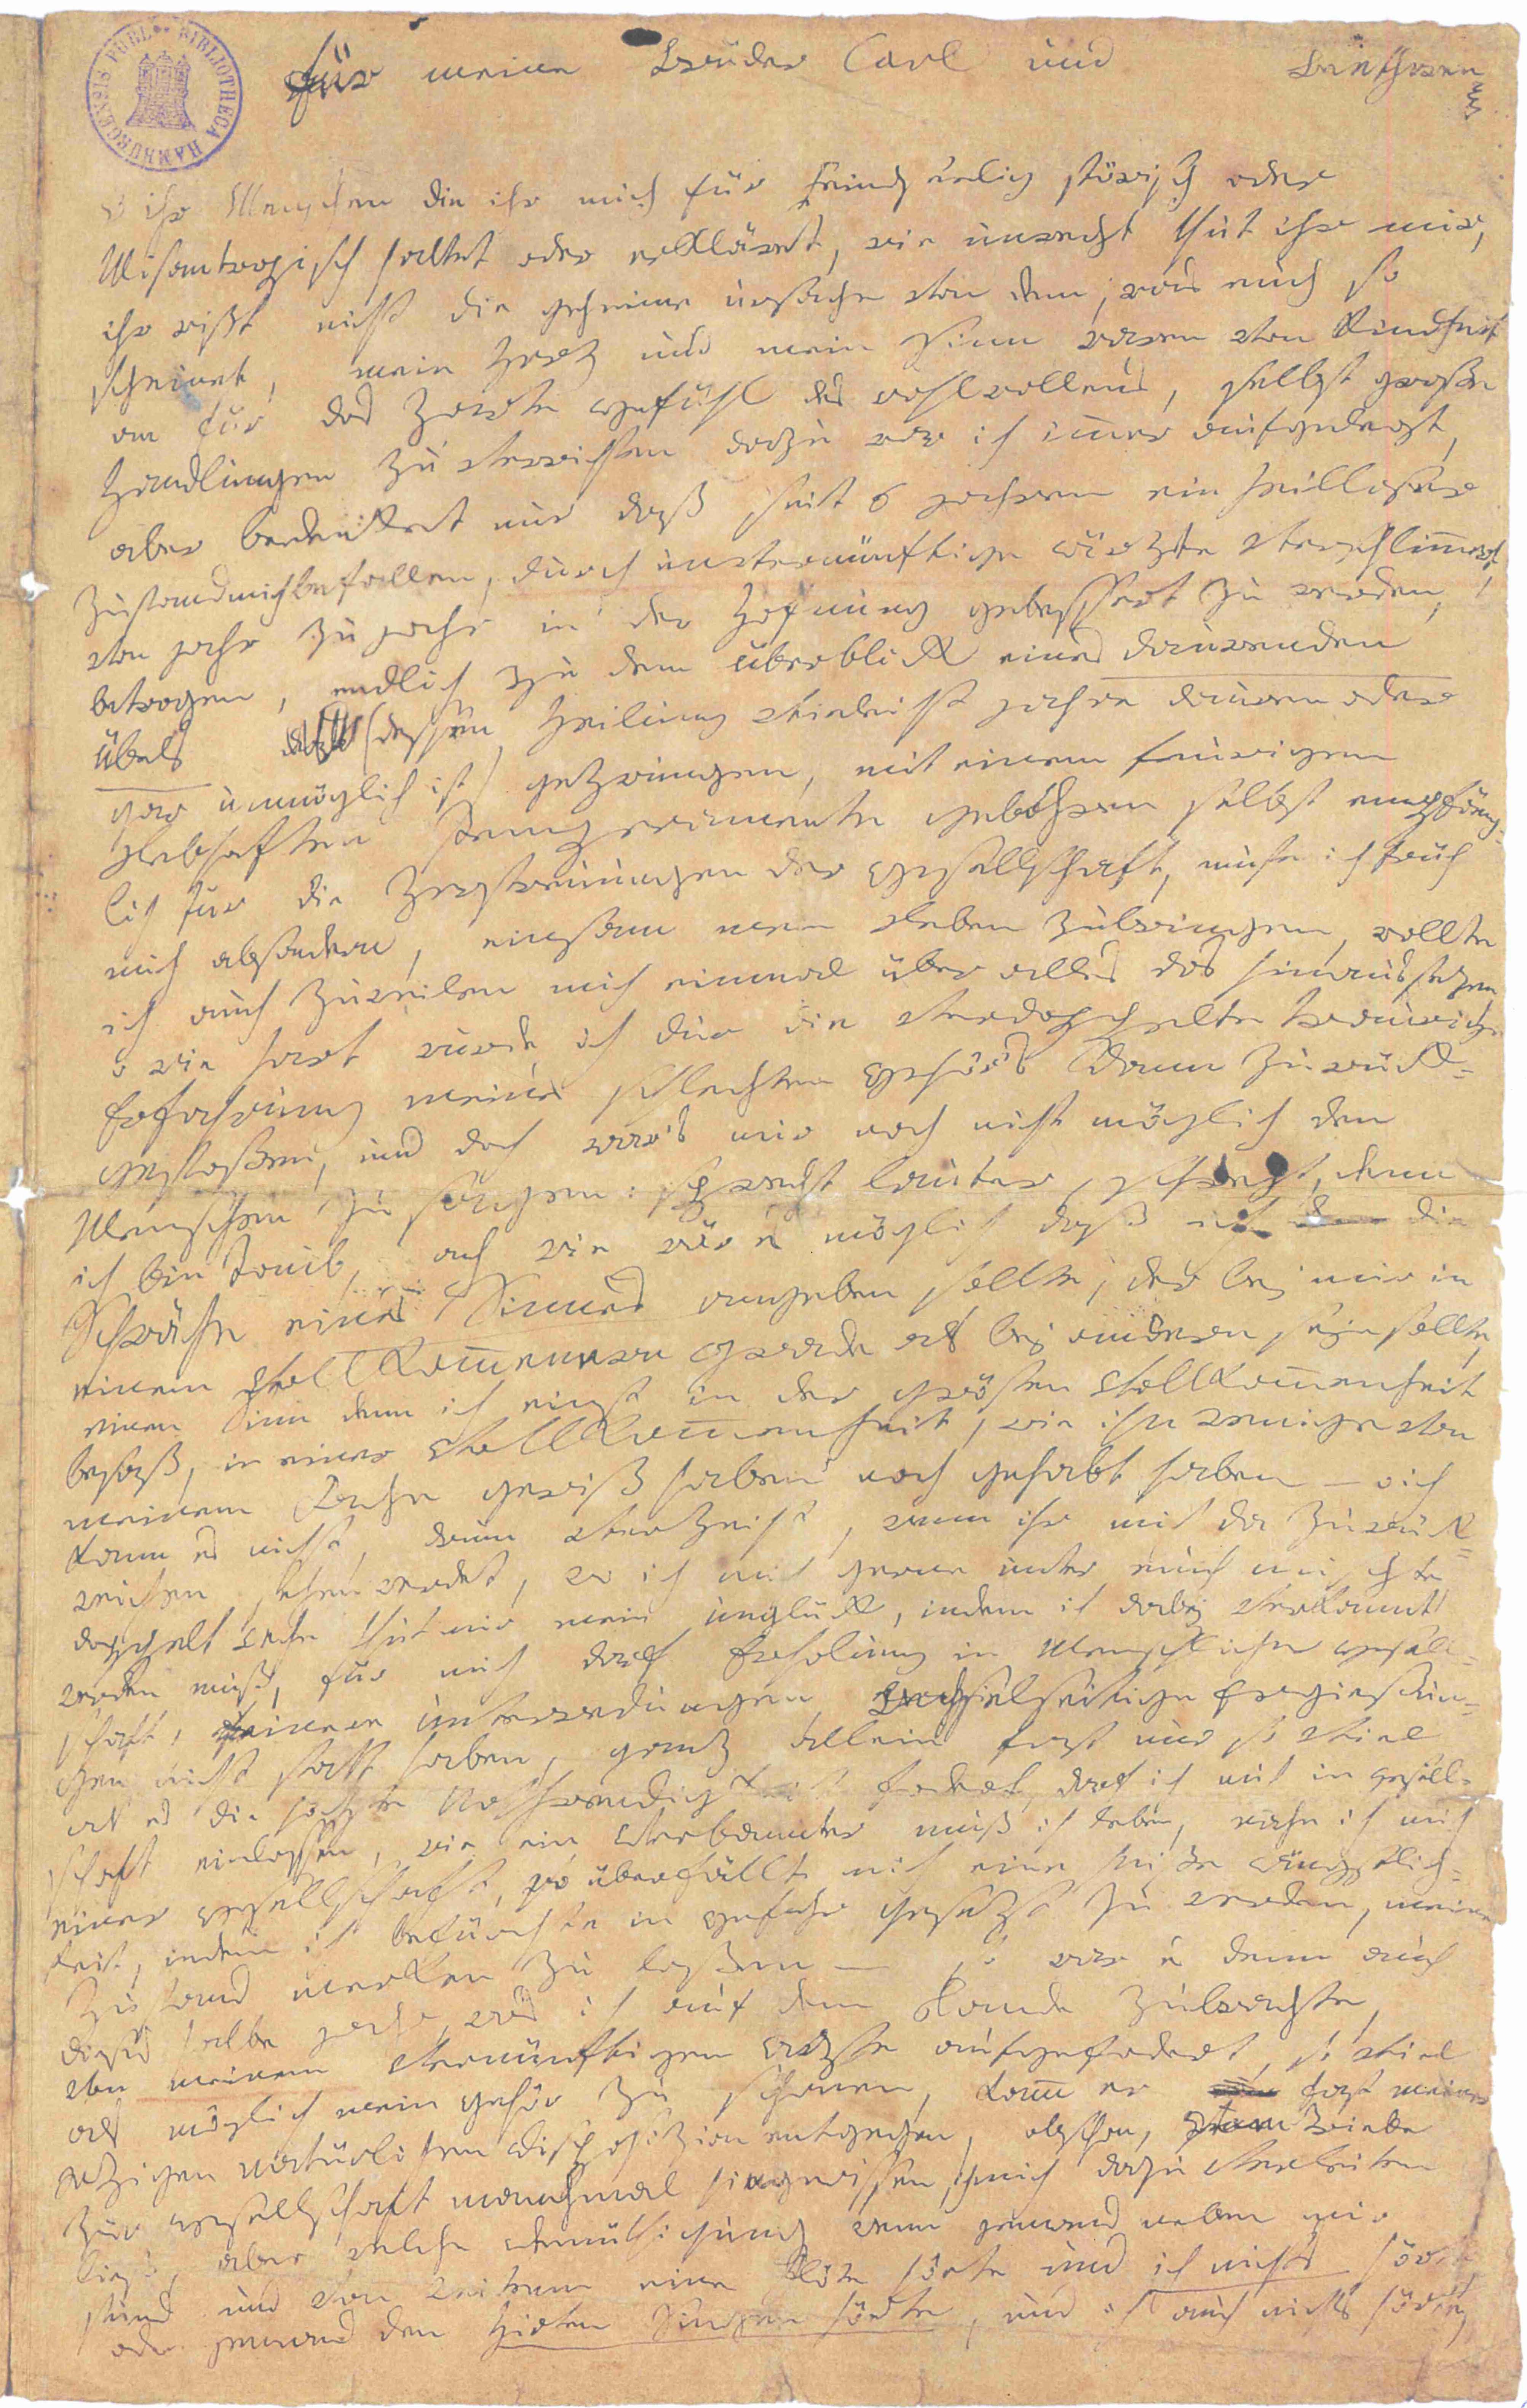 BIBLIOTHECA HAMBURGENSIS PUBL.
für meine Brüder Carl und Beethowen
o ihr Menschen die ihr mich für Feindseelig störisch oder
Misantropisch haltet oder erkläret, wie unrecht thut ihr mir,
ihr wißt nicht die geheime ursache von dem, was euch so
scheinet, mein Herz und mein Sinn waren von Kindheit
an für das Zarte Gefühl des wohlwollens, selbst große
Handlungen zu verrichten dazu war ich imer aufgelegt,
aber bedenket nur daß seit 6 jahren ein heilloser
Zustand mich befallen, durch unvernünftige ärzte verschlimmert,
von jahr zu jahr in der Hofnung gebessert zu werden,
betrogen, endlich zu dem überblick eines daurenden
Übels (dessen Heilung vieleicht jahre dauren oder
gar unmöglich ist) gezwungen, mit einem feurigem
Lebhaften Temperamente gebohren selbst empfäng-
lich für die Zerstreuungen der Gesellschaft, muste ich früh
mich absondern, einsam mein Leben zubringen, wollte
ich auch zuweilen mich einmal über alles das hinaussezen,
o wie hart wurde ich dur die verdoppelte traurige
Erfahrung meines schlechten Gehör's dann zurück-
gestoßen, und doch war's mir noch nicht möglich den
Menschen zu sagen: sprecht lauter, schreyt, denn
ich bin Taub, ach wie wär es möglich daß ich die
Schwäche eines Sinnes angeben sollte, der bey mir in
einem vollkommenern Grade als bey andern seyn sollte,
einen Sinn denn ich einst in der grösten Vollkommenheit
besaß, in einer Vollkommenheit, wie ihn wenige von
meinem Fache gewiß haben noch gehabt haben — o ich
kann es nicht, drum verzeiht, wenn ihr mich da zurück-
weichen sehen werdet, wo ich mich gerne unter euch mischte
doppelt wehe thut mir mein unglück, indem ich dabey verkannt
werden muß, für mich darf Erholung in Menschlicher Gesell-
schaft, feinere unterredungen, Wechselseitige Ergießun-
gen nicht statt haben, ganz allein fast nur so viel
als es die höchste Nothwendigkeit fodert, darf ich mich in gesell-
schaft einlassen, wie ein Verbannter muß ich leben, nahe ich mich
einer Gesellschaft, so überfällt mich eine heiße Ängstlich-
keit, indem ich befürchte in Gefahr gesezt zu werden, meinen
Zustand merken zu laßen — so war es denn auch
dieses halbe jahr, was ich auf dem Lande zubrachte,
von meinem vernünftigen Arzte aufgefodert, so viel
als möglich mein Gehör zu schonen, kamm er fast meiner
jezigen natürlichen Disposizion entgegen, obschon, vom Triebe
zur Gesellschaft manchmal hingerissen, ich mich dazu verleiten
ließ, aber welche Demüthigung wenn jemand neben mir
stund und von weitem eine Flöte hörte und ich nichts hörte
oder jemand den Hirten Singen hörte, und ich auch nichts hörte,